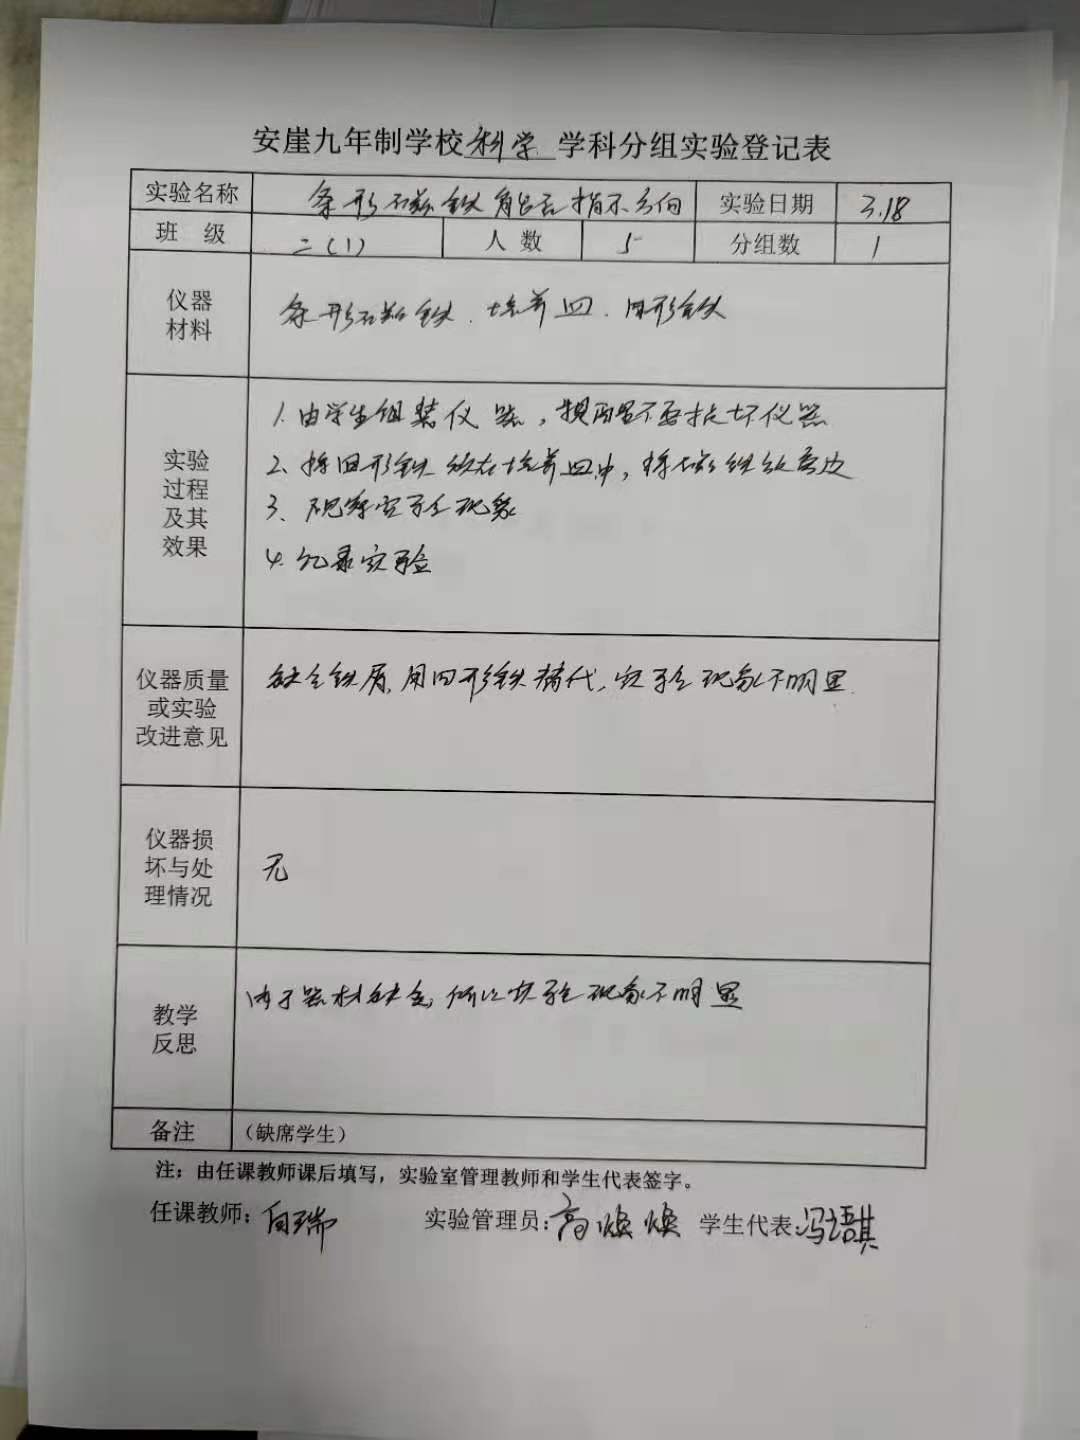 安崖九年制学校 科学 学科分组实验登记表
实验名称 条形磁铁能否指示方向 实验日期 3.18
班 级 二(1) 人数 5 分组数 1
仪器
材料
条形磁铁、培养皿、回形铁
实验
过程
及其
效果
1.由学生组装仪器,提醒不要损坏仪器
2、将回形铁放在培养皿中,将磁铁放旁边
3、观察实验现象
4.记录实验
仪器质量
或实验
改进意见
缺乏铁屑,用回形铁替代,实验现象不明显.
仪器损
坏与处
理情况
无
教学
反思
由于器材缺乏,所以实验现象不明显
备注 (缺席学生)
注:由任课教师课后填写,实验室管理教师和学生代表签字。
任课教师:白瑞 实验管理员:高焕焕 学生代表:冯语其